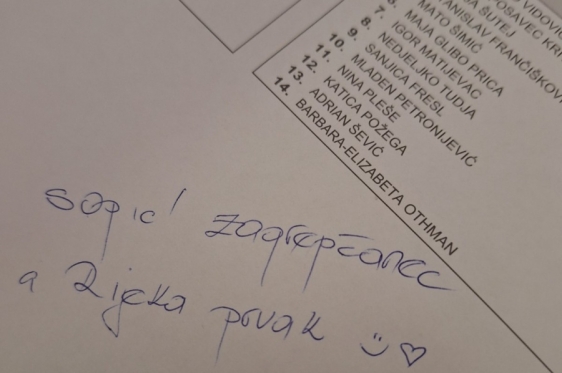 VIDOVIĆ
POSAVEC KRI
A ŠUTEJ
TANISLAV FRANČIŠKOVI
MATO ŠIMIĆ
6. MAJA GLIBO PRICA
7. IGOR MATIJEVAC
8. NEDJELJKO TUDJA
9. SANJICA FRESL
10. MLADEN PETRONIJEVIĆ
11. NINA PLEŠE
12. KATICA POŽEGA
13. ADRIAN ŠEVIĆ
14. BARBARA-ELIZABETA OTHMAN
sopić zagrepčanec
a Rijeka prvak